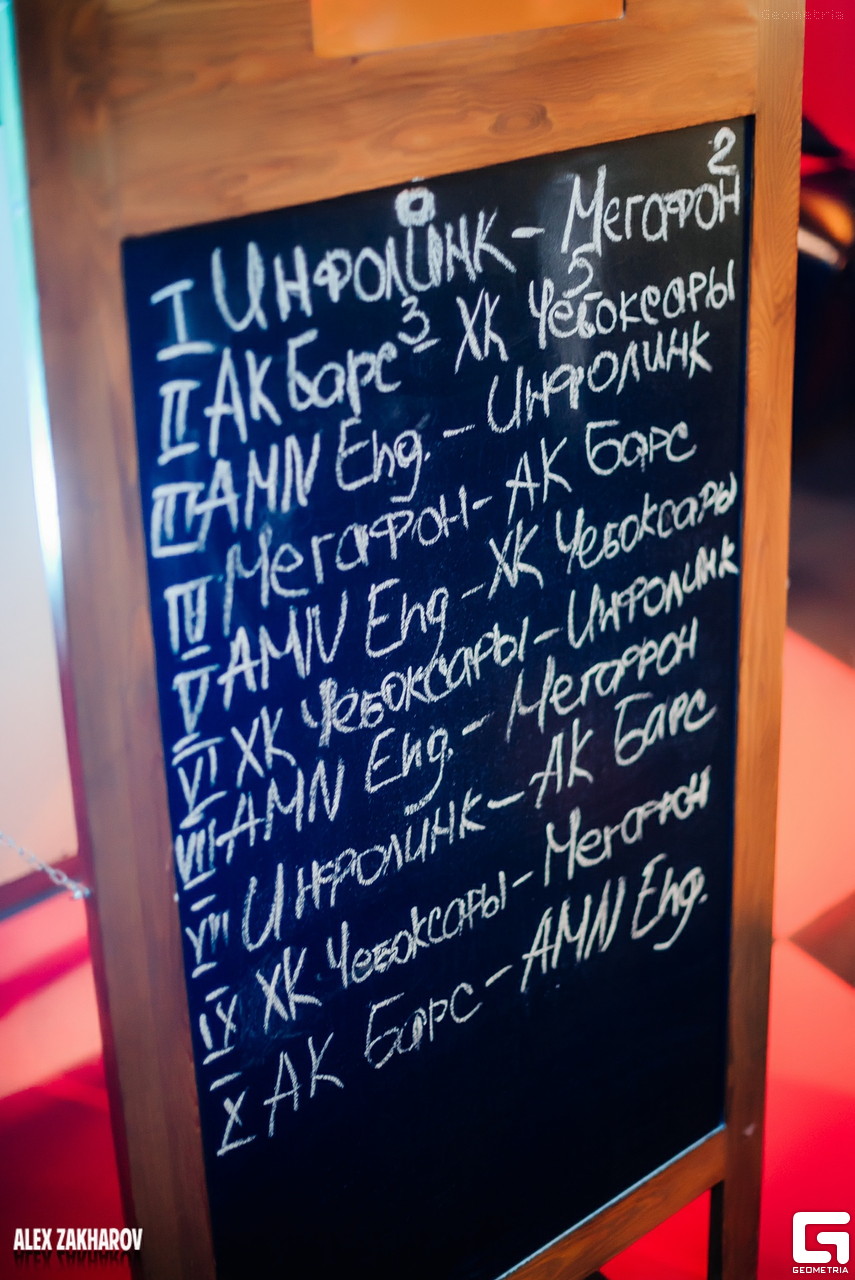 Geometria
0 2
I Инфолинк - Мегафон
3 5
II АК Барс - ХК Чебоксары
III AMN Eng. - Инфолинк
IV Мегафон - АК Барс
V AMN Eng - ХК Чебоксары
VI ХК Чебоксары - Инфолинк
VII AMN Eng. - Мегафон
VIII Инфолинк - АК Барс
IX ХК Чебоксары - Мегафон
X АК Барс - AMN Eng.
ALEX ZAKHAROV
GEOMETRIA